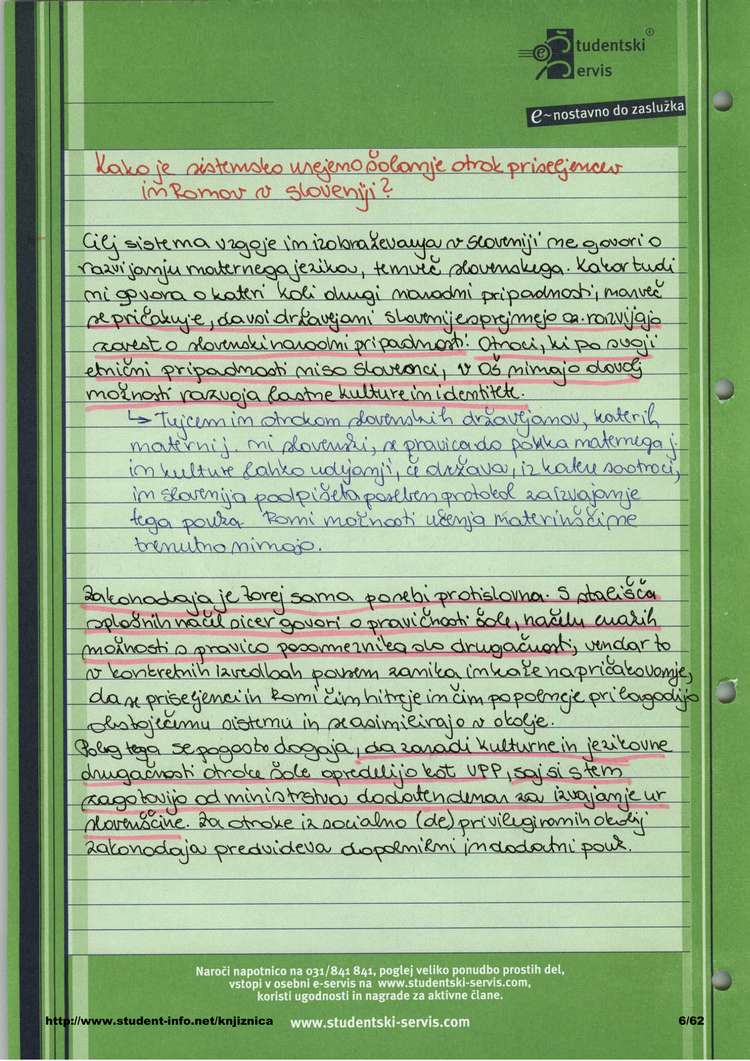 Študentski®
Servis
e~nostavno do zaslužka
Kako je sistemsko urejeno šolanje otrok priseljencev
in Romov v Sloveniji?
Cilj sistema vzgoje in izobraževanja v Sloveniji ne govori o
razvijanju maternega jezikov, temveč slovenskega. Kakor tudi
ni govora o kateri koli drugi narodni pripadnosti, marveč
se pričakuje, da vsi državljani Slovenije sprejmejo oz. razvijajo
zavest o slovenski narodni pripadnosti! Otroci, ki po svoji
etnični pripadnosti niso Slovenci, v OŠ nimajo dovolj
možnosti razvoja lastne kulture in identitete.
↳ Tujcem in otrokom slovenskih državljanov, katerih
materni j. ni slovenski, se pravica do pouka maternega j.
in kulture lahko udjanji, če država, iz katere so otroci,
in Slovenija podpišeta poseben protokol za izvajanje
tega pouka. Romi možnosti učenja materinščine
trenutno nimajo.
Zakonodaja je torej sama po sebi protislovna. S stališča
splošnih načel sicer govori o pravičnosti šole, načelu enakih
možnosti s pravico posameznika do drugačnosti, vendar to
v konkretnih izvedbah povsem zanika in kaže na pričakovanje,
da se priseljenci in Romi čim hitreje in čim popolneje prilagodijo
obstoječemu sistemu in se asimilirajo v okolje.
Poleg tega se pogosto dogaja, da zaradi kulturne in jezikovne
drugačnosti otroke šole opredelijo kot UPP, saj si s tem
zagotovijo od ministrstva dodaten denar za izvajanje ur
slovenščine. Za otroke iz socialno (de)privilegiranih okolij
zakonodaja predvideva dopolnilni in dodatni pouk.
Naroči napotnico na 031/841 841, poglej veliko ponudbo prostih del,
vstopi v osebni e-servis na www.studentski-servis.com,
koristi ugodnosti in nagrade za aktivne člane.
http://www.student-info.net/knjiznica www.studentski-servis.com 6/62